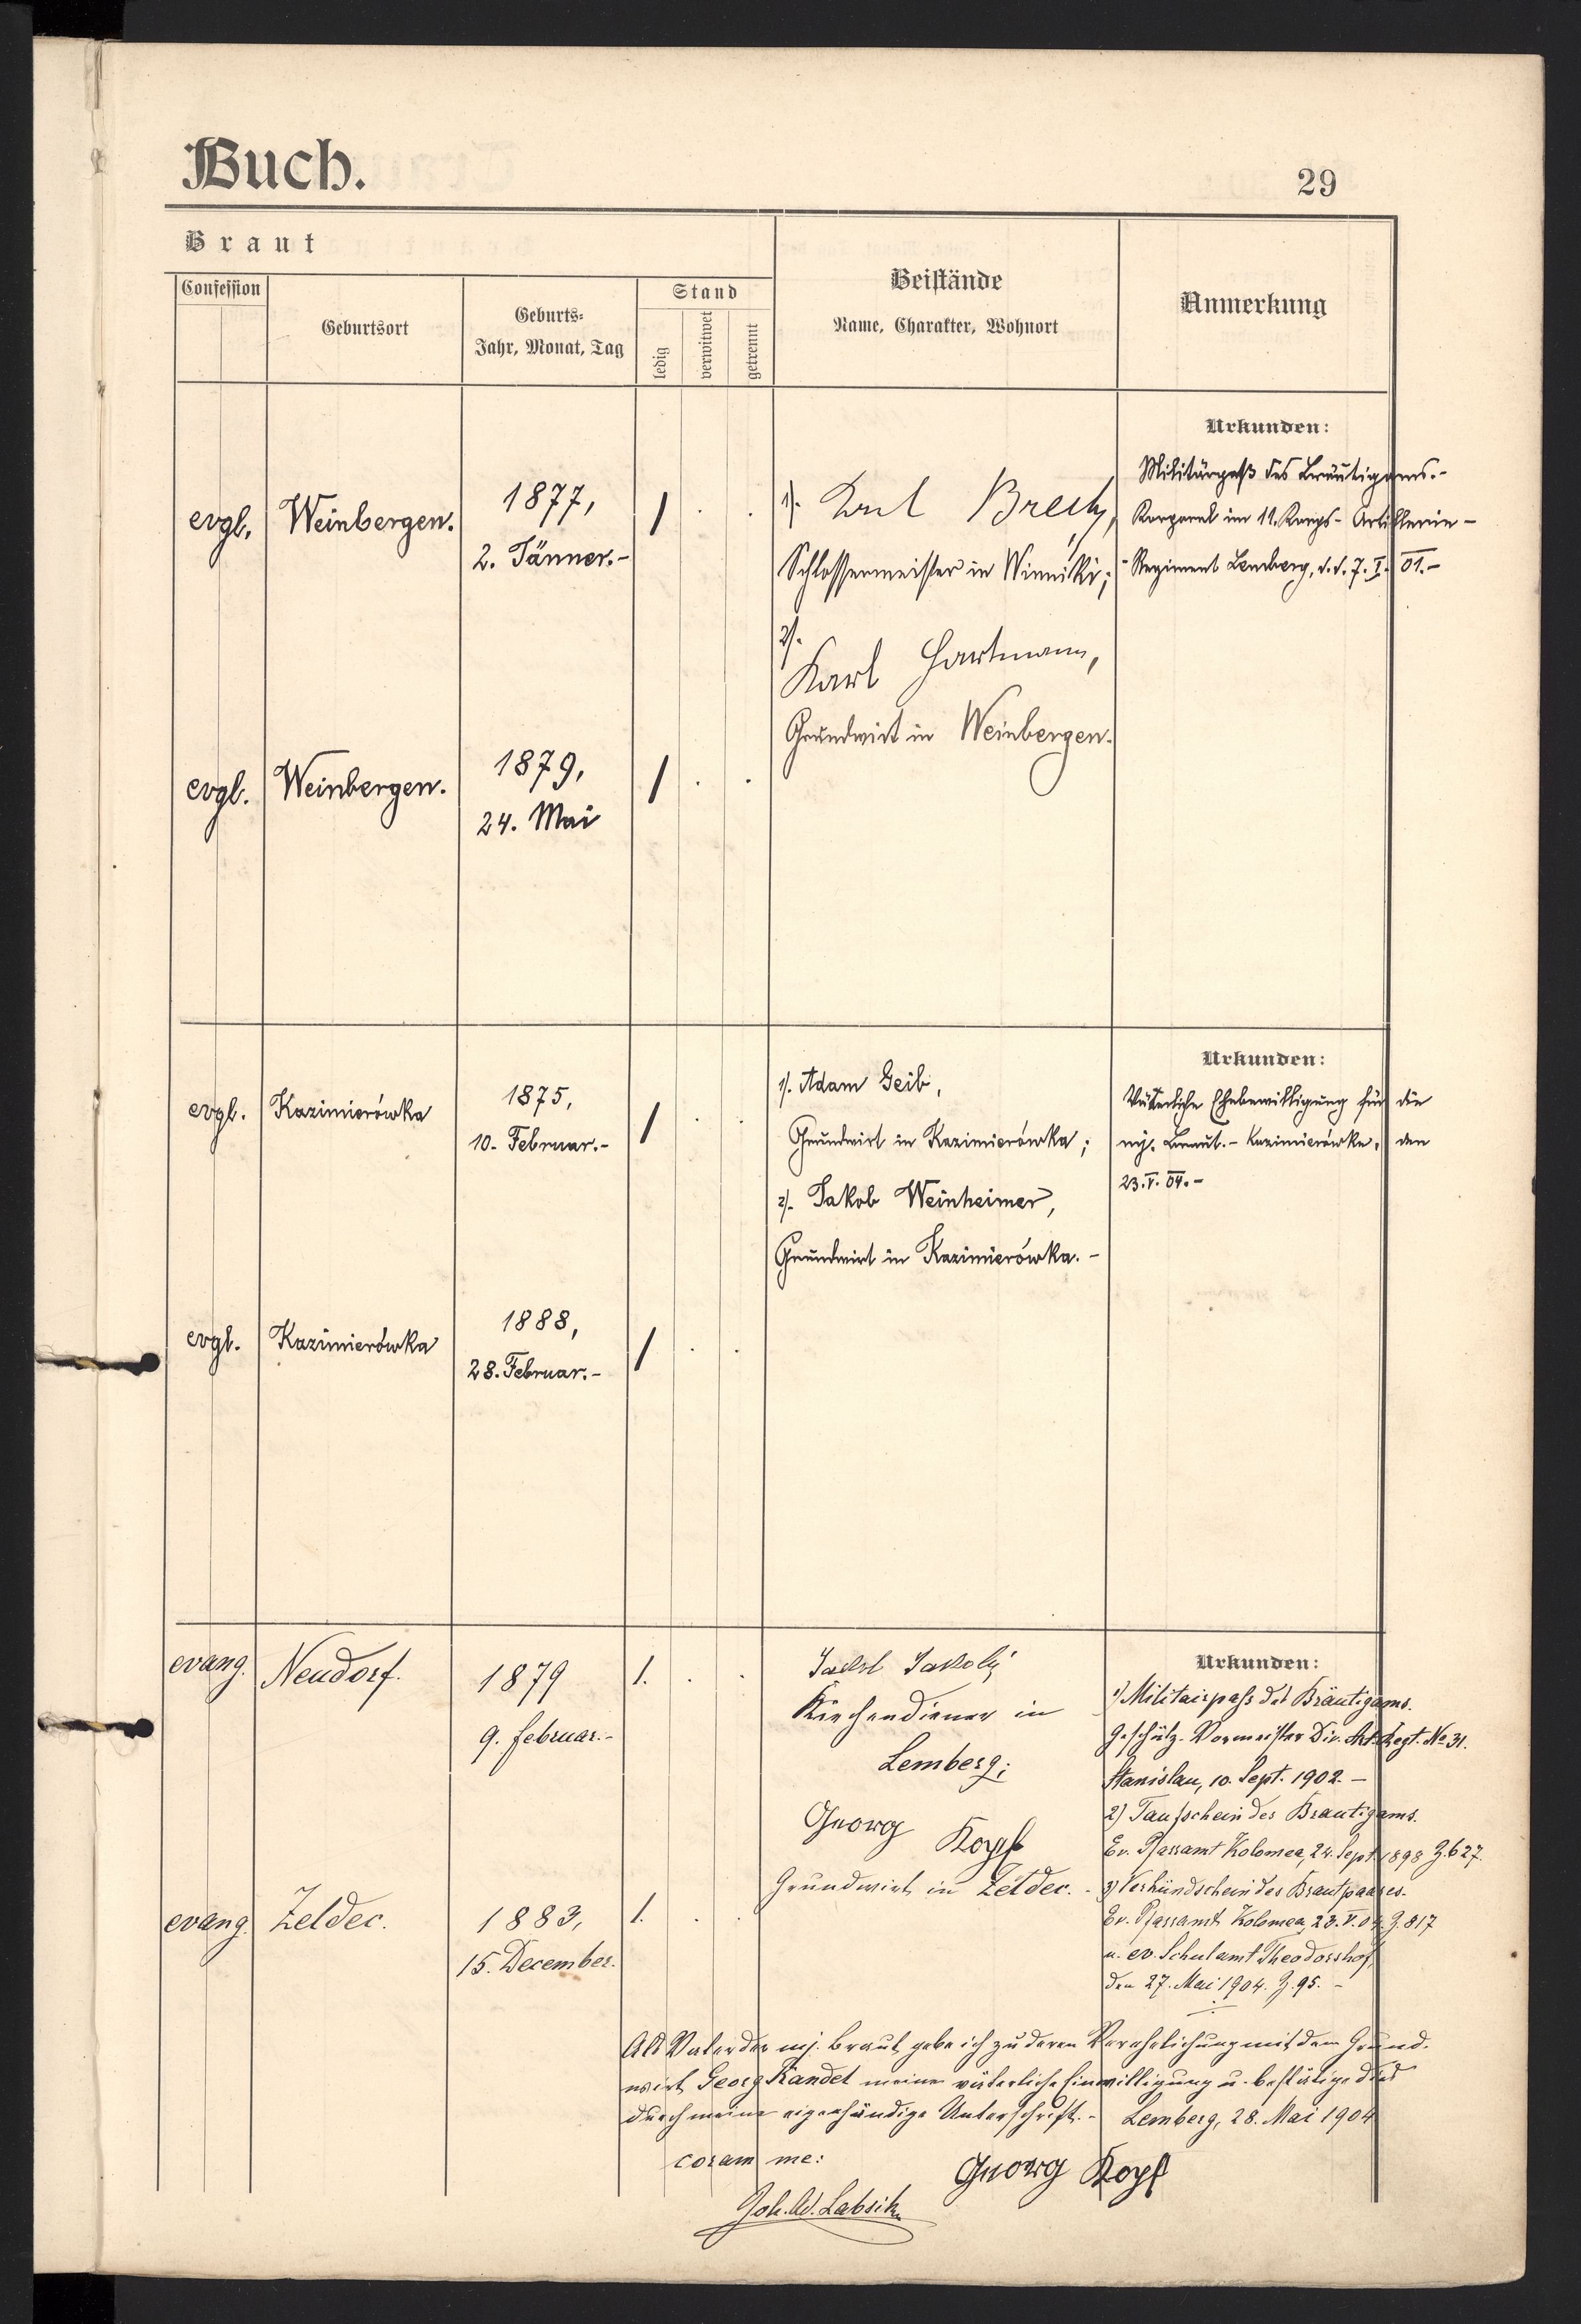 Buch.
29
Braut
Confession
Geburtsort
Geburts-
Jahr, Monat, Tag
Stand
ledig
verwitwet
getrennt
Beistände
Name, Charakter, Wohnort
Anmerkung
evgl.
Weinbergen.
1877,
2. Jänner.-
1
1). Karl Brech,
Schlossermeister in Winniki;
2).
Karl Hartmann,
Grundwirt in Weinbergen.
Urkunden:
Militärpaß des Bräutigams.-
Korporal im 11. Korps-Artillerie-
Regiment Lemberg, d.d. 7. I. 01.-
evgl.
Weinbergen.
1879,
24. Mai
1
evgl.
Kazimierówka
1875,
10. Februar.-
1
1). Adam Geib,
Grundwirt in Kazimierówka;
2). Jakob Weinheimer,
Grundwirt in Kazimierówka.-
Urkunden:
Väterliche Ehebewilligung für die
mj. Braut.- Kazimierówka, den
23. V. 04.-
evgl.
Kazimierówka
1888,
28. Februar.-
1
evang.
Neudorf.
1879
9. Februar.-
1.
Jakob
Kirchendiener in
Lemberg;
Georg Kopf
Grundwirt in Zeldec.-
Urkunden:
1) Militairpass des Bräutigams.
Geschütz-Vormeister Div. Art. Regt. No 31.
Stanislau, 10. Sept. 1902.-
2) Taufschein des Brautigams.
Ev. Pfarramt Kolomea, 24. Sept. 1898 Z. 627.
3) Verkündschein des Brautpaares.
Ev. Pfarramt Kolomea, 23. V. 04. Z. 817
u. ev. Schulamt Theodorshof,
den 27. Mai 1904. Z. 95.-
evang.
Zeldec.
1883,
15. December.
1.
Als Vater der mj. Braut gebe ich zu deren Verehelichung mit dem Grund-
wirt Georg Kandel meine väterliche Einwilligung u. bestätige dies
durch meine eigenhändige Unterschrift.- Lemberg, 28. Mai 1904
coram me:
Georg Kopf
Joh. Ad. Labsik